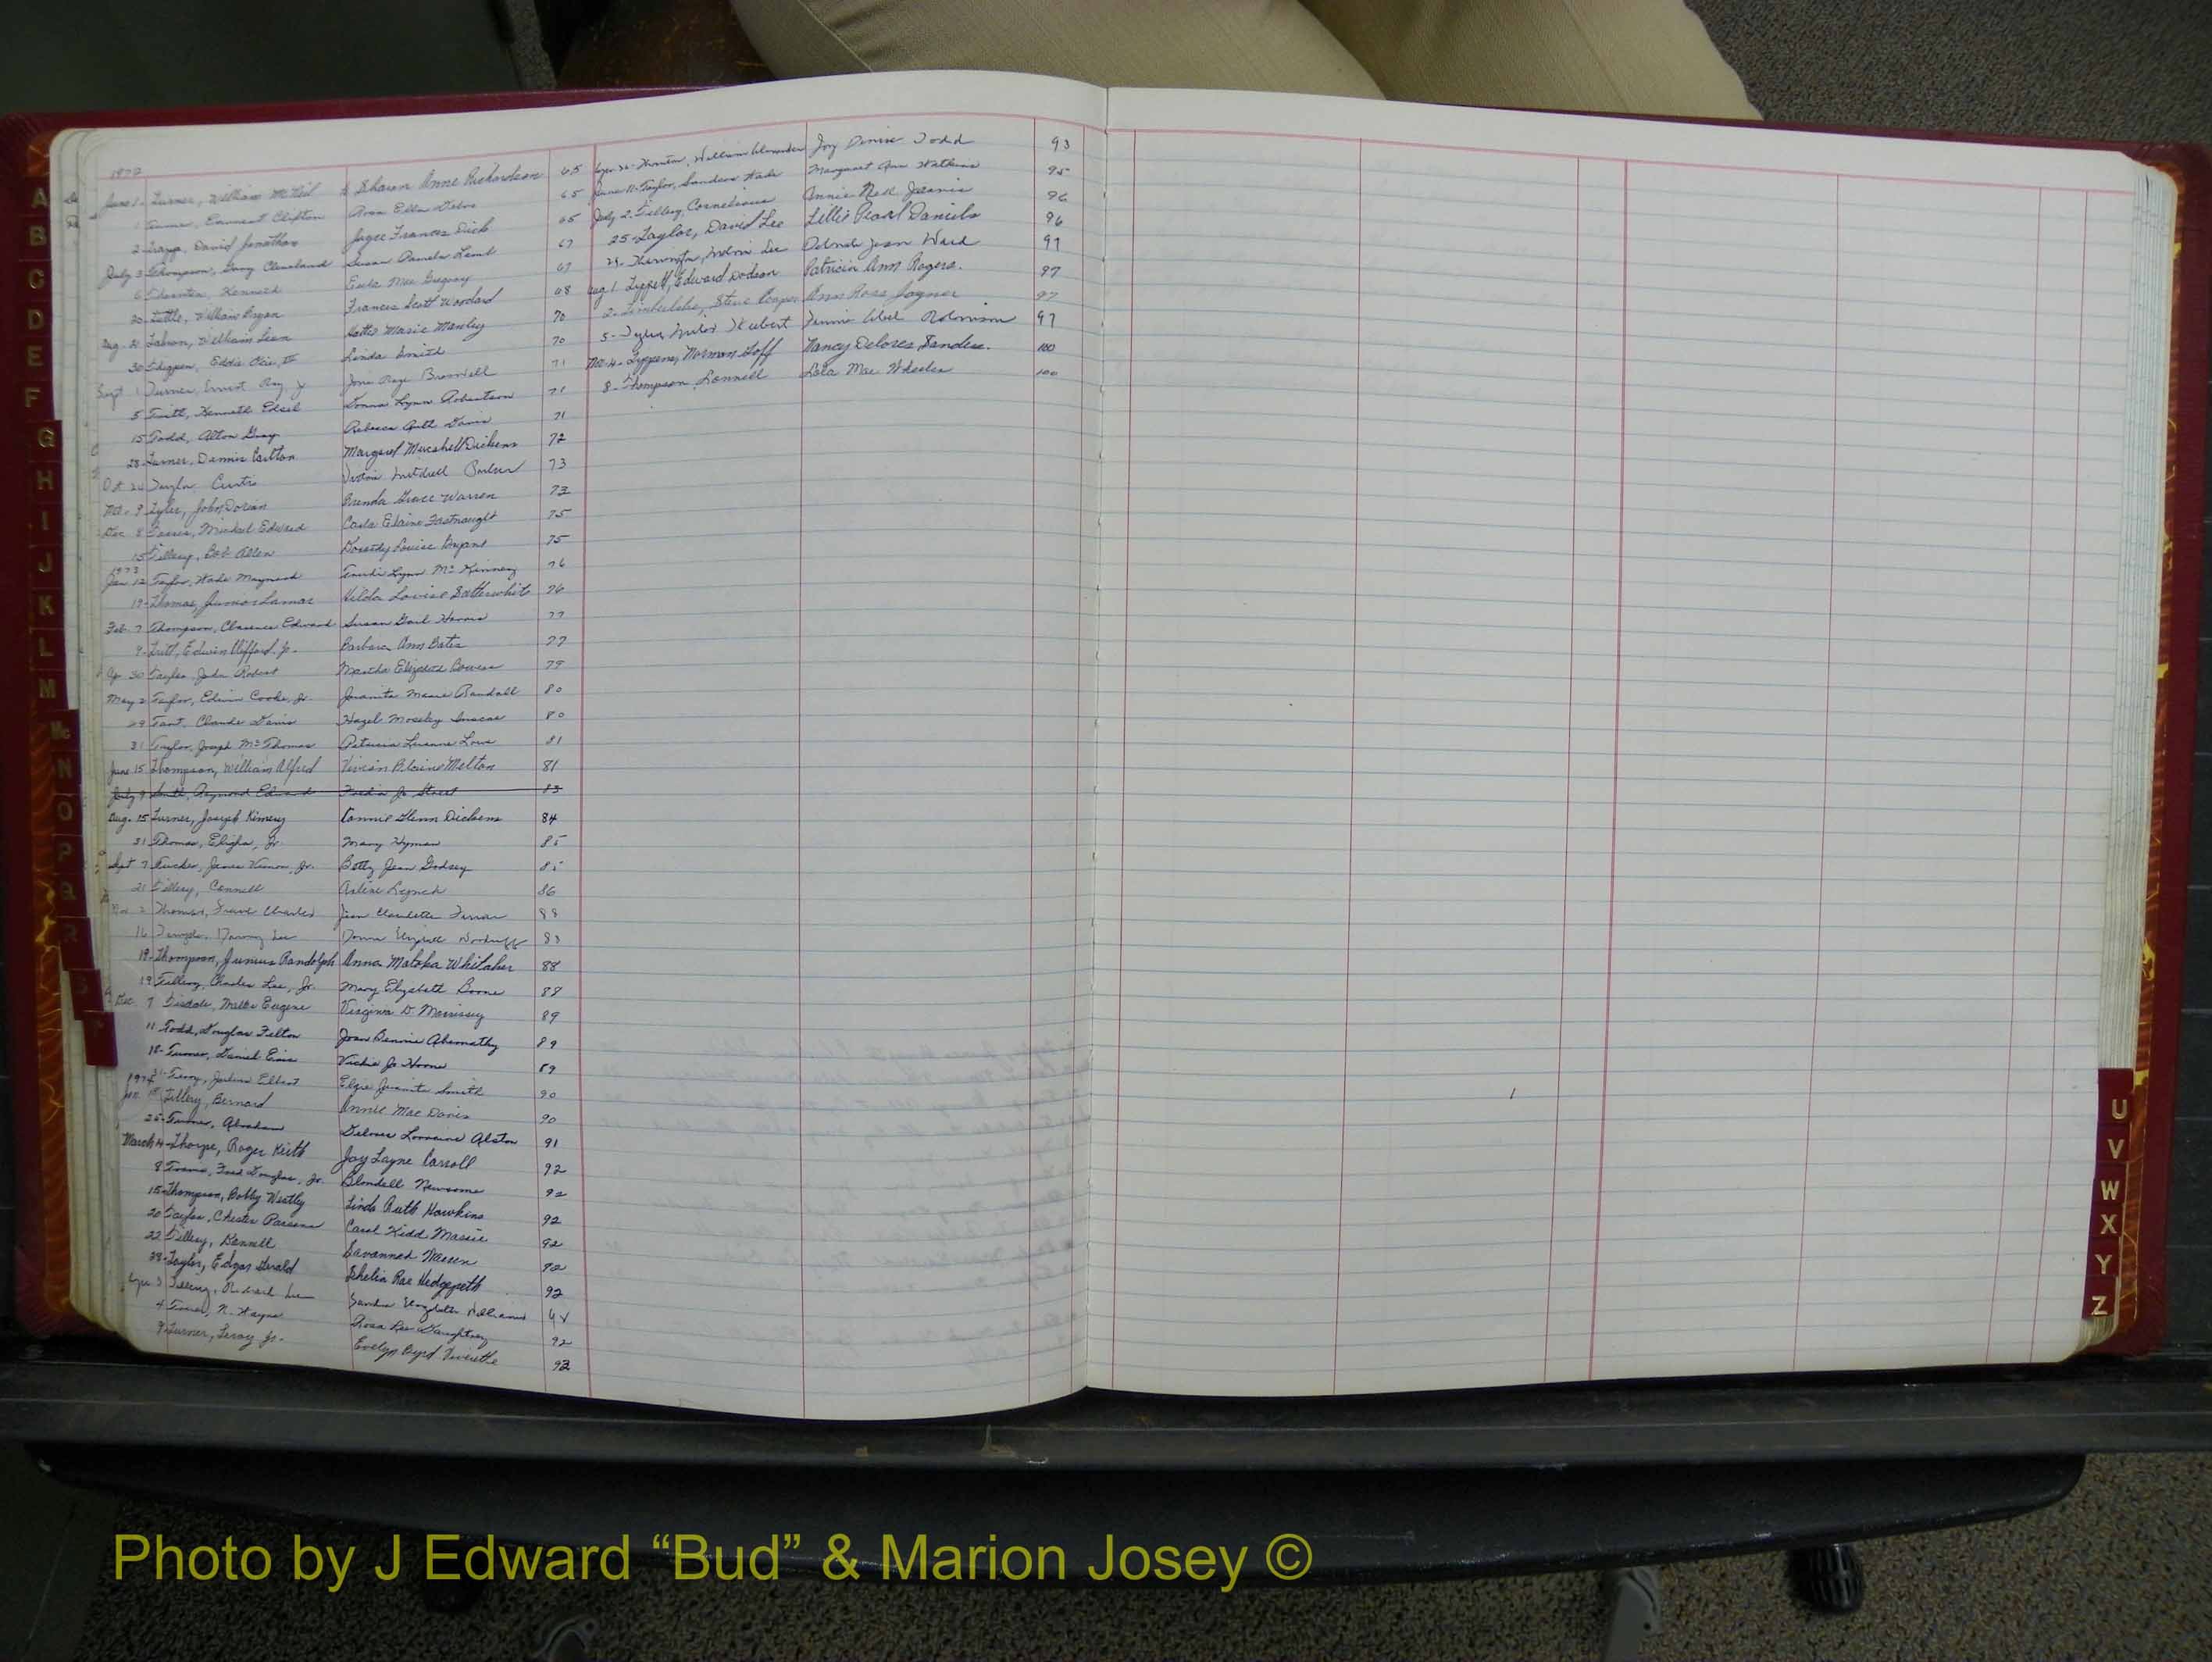 1972
June 1- Turner, William McNeil to Sharon Anne Richardson 65
1 Turner, Earnest Clifton Avon Ella 65
2- Trapp, David Jonathan Joyce Frances Dick 65
July 3- Thompson, Gary Cleveland Susan Pamela Lamb 67
6 Thornton, Kenneth Eula Mae Gregory 67
30- Tuttle, William Bryan Frances Scott Woodard 68
Aug. William Leon Hattie Marie Manley 70
30 Eddie Linda Smith 70
Sept 1 Turner, Ernest Ray Jr June Raye 71
5 Kenneth Edsel Donna Lynn Robertson 71
15 Todd, Alton Gray Rebecca Davis 71
28- Turner, Dannie Carlton Margaret Marshall Dickens 72
Oct 24 Taylor Curtis 73
Nov. 9 Tyler, John Dorian Brenda Grace Warren 73
Dec 8 Michael Edward Carla Elaine Fastnaught 75
15 Tillery, Bob Allen Dorothy Louise Bryant 75
1973
Jan. 12 Taylor, Wade Maynard Lynn McKinney 76
19- Thomas, Junior Lamar Hilda Louise Satterwhite 76
Feb. 7 Thompson, Clarence Edward Susan Gail Harris 77
9- Edwin Clifford, Jr. Barbara Ann Bates 77
Ap 30 Taylor, John Robert Martha Elizabeth Bowers 79
May 2 Taylor, Edwin Cooke, Jr. Juanita Marie Randall 80
29 Tant, Claude Davis Hazel Moseley Inscoe 80
31 Taylor, Joseph McThomas Patricia Luanne Love 81
June 15 Thompson, William Alfred Vivian Elaine Melton 81
July 9 Raymond Edward Jo Street 83
Aug. 15 Turner, Joseph Kimery Connie Glenn Dickens 84
31 Thomas, Elijha, Jr. Mary Hyman 85
Sept 7 Tucker, James Vernon, Jr. Betty Jean Godsey 85
21 Tillery, Connell Arlene Lynch 86
Nov 2 Thomas, Charles Jean Claudette 88
16 Danny Lee Donna Elizabeth Woodruff 83
19- Thompson, Junius Randolph Anna Matoka Whitaker 88
19 Tillery, Charles Lee, Jr. Mary Elizabeth Boone 88
Dec. 7 Tisdale, Eugene Virginia D. Morrissey 89
11 Todd, Douglas Felton Joan Bennie Abernathy 89
18- Turner, Daniel Vickie Jo Horne 89
21 Terry, Joshua Elbert Juanita Smith 90
1974
Jan. Tillery, Bernard Annie Mae Davis 90
25- Turner, Abraham Delores Lorraine Alston 91
March 4- Thorpe, Roger Keith Joy Layne Carroll 92
8 Fred Douglas, Jr. Blondell Newsome 92
15- Thompson, Bobby Westley Linda Ruth Hawkins 92
20 Taylor, Chester Parsons Carol Kidd Massie 92
22 Tillery, Kennell Savannah 92
28- Taylor, Edgar Gerald Shelia Rae Hedgepeth 92
Apr 3 Tillery, Lee Sandra Elizabeth Williams
4 Turner, N. Wayne Rosa Lee Daughtrey 92
9 Turner, Leroy Jr. Evelyn Byrd Viverette 93
Apr. William Alexander Joy Denise Todd 93
June 11- Taylor, Sanders Wade Margaret Ann Watkins 95
July 2- Tillery, Cornelious Annie Nell 96
25- Taylor, David Lee Lillie Pearl Daniels 96
Lee Jean Ward 97
Aug 1 Tippett, Edward Dodson Patricia Ann Rogers. 97
2- Timberlake, Steve Cooper Ann Rose Joyner 97
5- Tyler, Hubert Robinson 97
Nov. 4- Tippens, Norman Goff Nancy Delores Sanders. 100
8- Thompson, Lonnell Lola Mae Wheeler 100
A
B
C
D
E
F
G
H
I
J
K
L
M
Mc
N
O
P
Q
R
S
U
V
W
X
Y
Z
Photo by J Edward “Bud” & Marion Josey ©